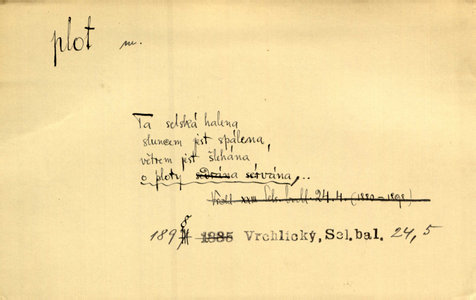 plot m.
Ta selská halena
sluncem jest spálena,
větrem jest šlehána,
o ploty sedrána sérvána, ..
24.4. (1880-1898)
1898 1885 Vrchlický, Sel.bal. 24,5